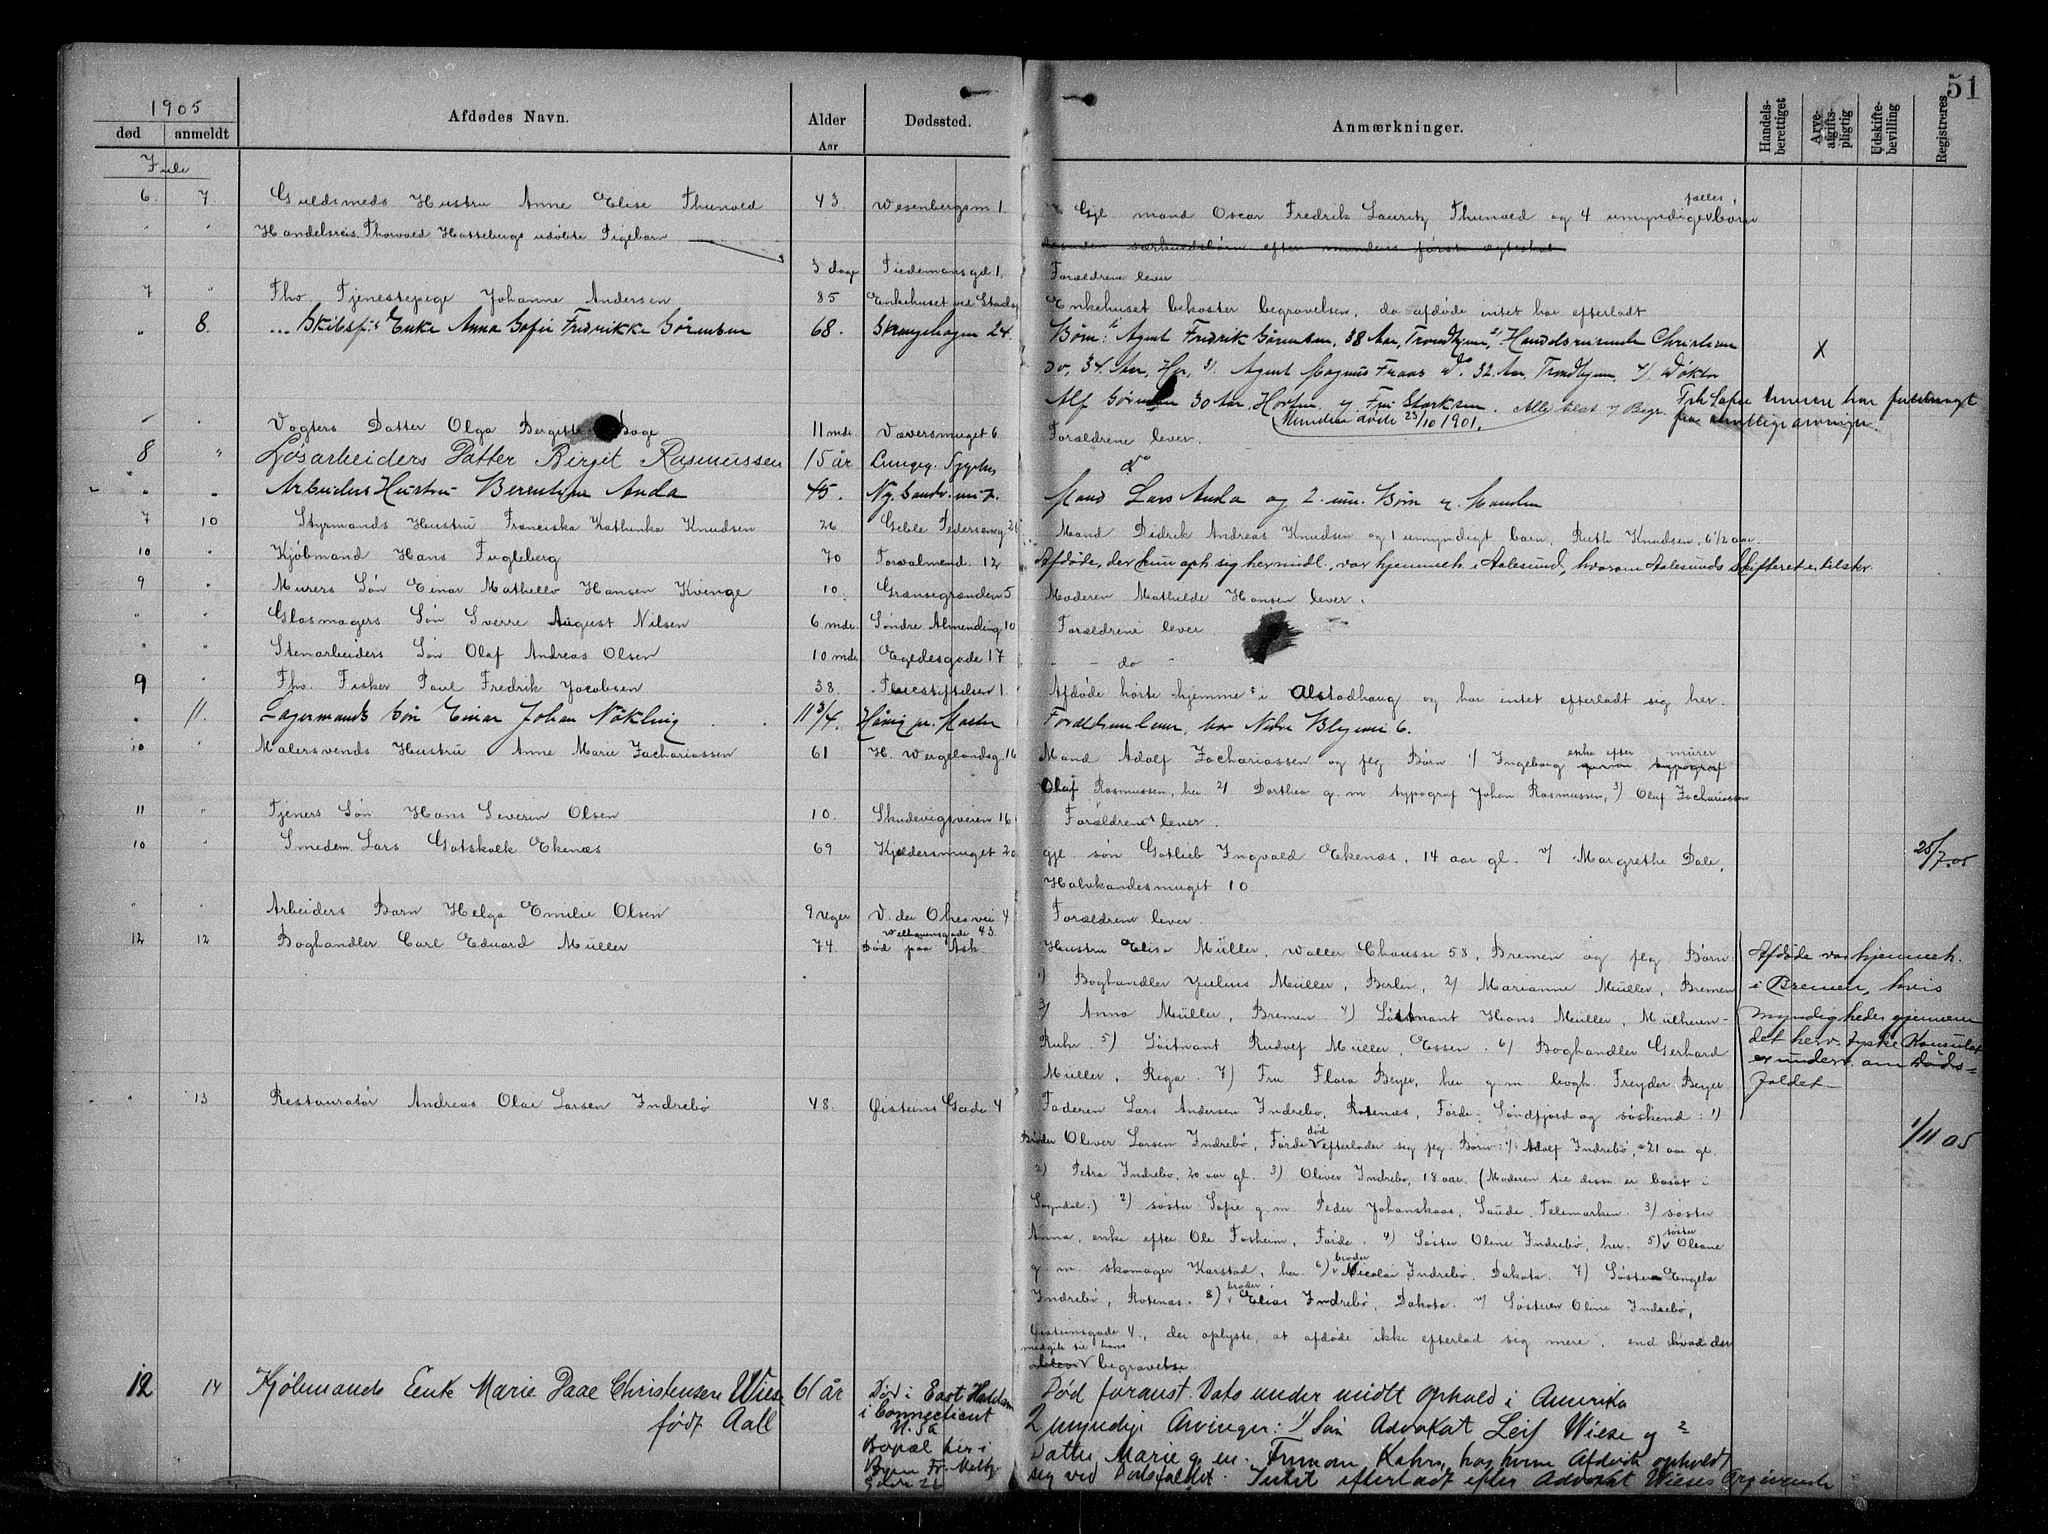 51
1905
død anmeldt Afdødes Navn. Alder Aar Dødssted. Anmærkninger. Handels-berettiget Arve-afgifts-pligtig Udskifte-bevilling Registreres
Juli
6. 7. Guldsmeds Hustru Anne Elise Thunold 43. Wesenbergsm 1. Gjl. mand Oscar Fredrik Lauritz Thunold og 4 umyndige fælles børn
" " Handelsreis. Thorvald Hattebergs udøbte Pigebarn
3 dage Tiedemansgd 1. Forældrene lever
7 " Fhv. Tjenestepige Johanne Andersen 85 Enkehuset ved Stads Enkehuset bekoster begravelsen, da afdøde intet har efterladt
" 8. Skibsf's Enke Anna Sofie Fredrikke Sørensen 68. Skugehagen 24. Børn: 1) Agent Fredrik Sørensen, 38 Aar, Trondhjem, 2) Handelsreisende Christian X
do, 34 Aar, Her, 3) Agent Magnus Frans do. 32 Aar, Trondhjem, 4) Doktor
Alf Sørensen 30 Aar, Horten
Manden døde 23/10 1901.
" " Vogters Datter Olga Bergitte Boge 11 mdr. Væversmuget 6 Forældrene lever.
8 " Løsarbeiders Datter Birgit Rasmussen 15 år Lungeg. Sygehus do
" " Arbeiders Hustru Berentine Anda 45. Mand Lars Anda og 2 um. Børn v. Manden
7 10 Styrmands Hustru Franciska Kathinka Knudsen 26 Geble Pedersensg 26 Mand Didrik Andreas Knudsen og 1 umyndigt barn, Ruth Knudsen, 6 1/2 aar.
10 " Kjøbmand Hans Fugleberg 70 Torvalmend. 12 Afdøde, der kun oph. sig her midl., var hjemmeh. i Aalesund, hvorom Aalesunds Skifteret er tilskr.
9 " Murers Søn Einar Mathello Hansen Kvinge 10 Grænsegrænden 5 Moderen Mathilde Hansen lever.
" " Glasmagers Søn Sverre August Nilsen 6 mdr. Søndre Almending 10 Forældrene lever
" " Stenarbeiders Søn Olaf Andreas Olsen 10 mdr Egedesgade 17 - do -
9 " Fhv. Fisker Paul Fredrik Jacobsen 38. Pleiestiftelsen 1. Afdøde hørte hjemme i Alstadhaug og har intet efterladt sig her.
" 11. Lagermands Søn Einar Johan Nökling 11 3/4. Forældrene lever, bor Nedre Blegevei 6.
10 " Malersvends Hustru Anne Marie Zachariassen 61 H. Wergelandsg 16 Mand Adolf Zachariassen og flg Børn 1/ Ingeborg enke efter murer
Olaf Rasmussen, her 2/ Dorthea g. m. typograf Johan Rasmussen, 3) Olaf Zachariassen
11 " Tjeners Søn Hans Severin Olsen 10. Skudevigsveien 16 Forældrene lever.
10 " Smedem. Lars Gotskalk Ekenæs 69 Kjeldersmuget 20 gjl. søn Gotlieb Ingvald Ekenæs, 14 aar gl. v/ Margrethe Dale, 25/7.05
Halvkandesmuget 10
" " Arbeiders Barn Helga Emilie Olsen 9 uger V. der Ohesvei 4 Forældrene lever.
12 12 Boghandler Carl Eduard Müller 74. Welhavensgade 43. Død paa Ask. Hustru Elisa Müller, Waller Chausse 58, Bremen og flg Børn:
1) Boghandler Julius Müller, Berlin, 2) Marianne Müller, Bremen
3) Anna Müller, Bremen 4) Løitnant Hans Müller, Mülheim-
Ruhr 5) Løitnant Rudolf Müller, Essen. 6) Boghandler Gerhard
Müller, Riga. 7) Fru Flora Beyer, her g.m. bogh. Freyder Beyer
Afdøde var hjemmeh.
i Bremen, hvis
myndigheder gjennem
det herv. tyske Konsulat
er underr. om Døds-
faldet
" 13 Restauratør Andreas Olai Larsen Indrebø 48. Øisteins Gade 4 Faderen Lars Andersen Indrebø, Rotenæs, Førde, Søndfjord og søskend: 1) 1/11 05
Broder Oliver Larsen Indrebø, Førde død efterlader sig flg. Børn: 1) Adolf Indrebø, 21 aar gl.
2) Petra Indrebø, 20 aar gl. 3) Oliver Indrebø, 18 aar. (Moderen til disse er bosat i
Sogndal.) 2) søster Sofie g.m. Peder Johanskaas, Saude, Telemarken. 3) søster
Anna, enke efter Ole Fosheim, Førde. 4) Søster Oline Indrebø, her. 5) søster Olsane
g. m. skomager Karstad, her. 6) broder Nicolai Indrebø, Dakota. 7) Søster Engela
Indrebø, Rotenæs. 8) broder Elias Indrebø, Dakota. v/ Søsteren Oline Indrebø,
Øisteinsgade 4., der oplyste, at afdøde ikke efterlod sig mere end hvad der
medgik til hans begravelse.
12 14 Kjøbmands Enke Marie Daae Christensen Wiese 61 år Død i East Haddam Død foranst. Dato under midlt ophold i Amerika
født Aall i Connecticut 2 myndige Arvinger: 1/ Søn Advokat Leif Wiese og 2
U.S.a Datter Marie g. m. Truman Kahrs, hos hvem Afdøde opholdt
Bopæl her i sig ved Dødsfaldet. Intet efterladt efter Advokat Wieses Opgivende
Byen Fr. Meltz.
Gade 26